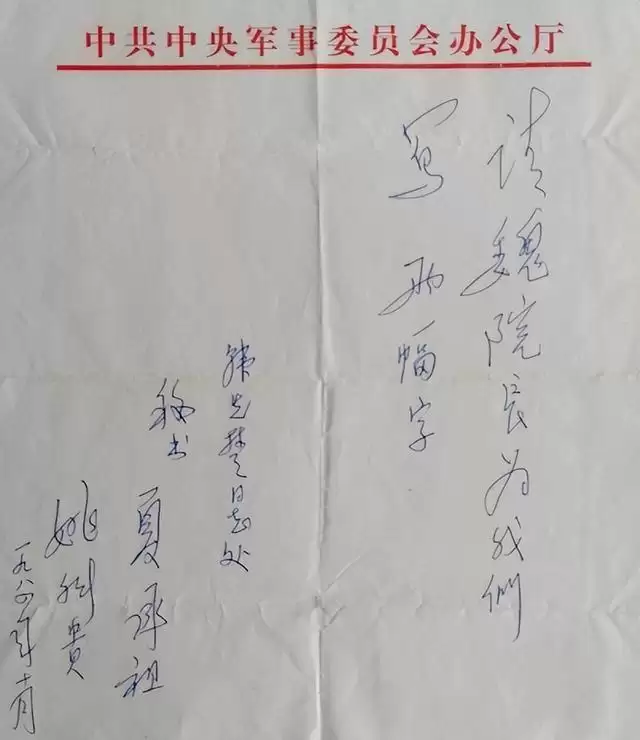 中共中央军事委员会办公厅
请魏院长为我们
写两幅字
韩先楚同志处
秘书
夏承祖
姚科贵
一九八六年十月